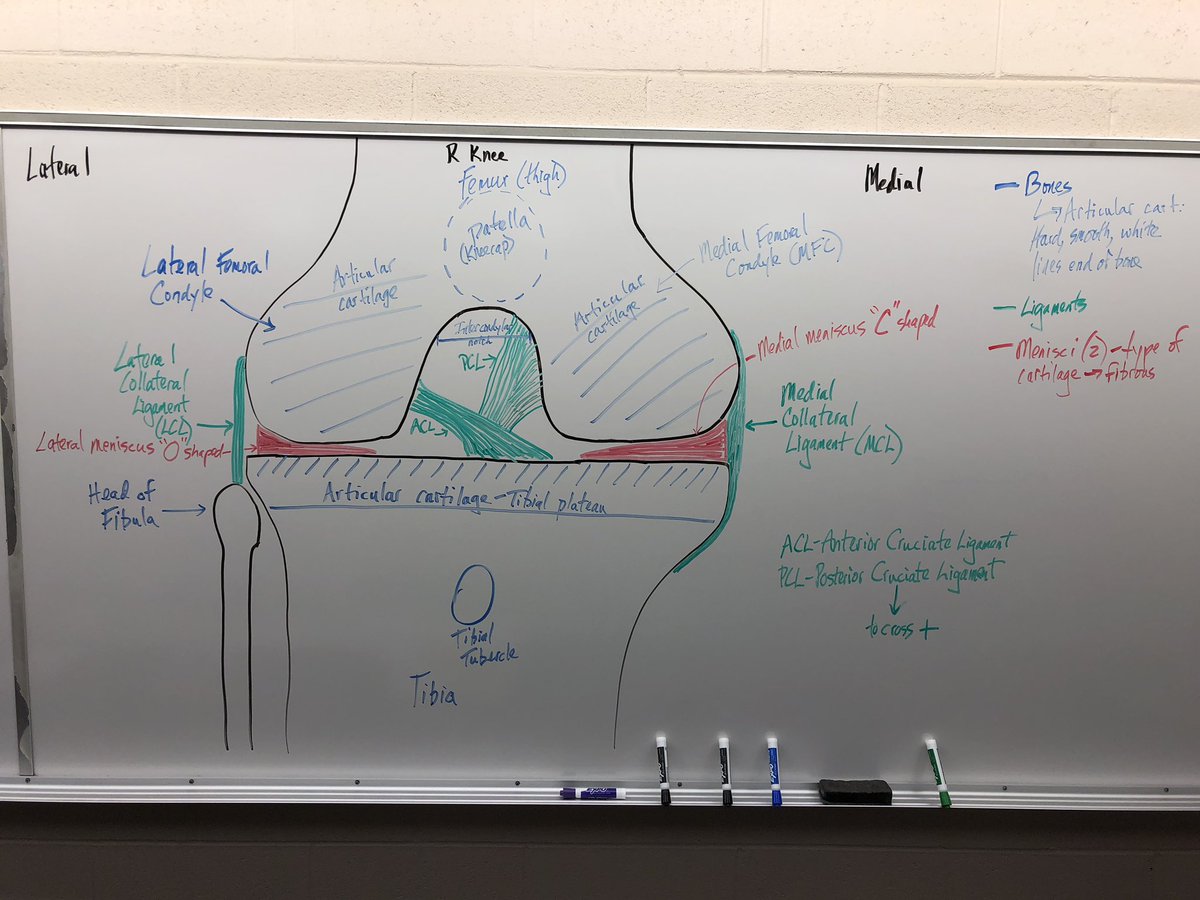 Lateral
R Knee
Femur (thigh)
Patella
(Kneecap)
Medial
Lateral Femoral
Condyle
Articular
cartilage
Articular
cartilage
Medial Femoral
Condyle (MFC)
Intercondylar
notch
PCL
ACL
Medial meniscus "C" shaped
Lateral
Collateral
Ligament
(LCL)
Lateral meniscus "O" shaped
Medial
Collateral
Ligament (MCL)
Head of
Fibula
Articular cartilage - Tibial plateau
Tibial
Tubercle
Tibia
ACL-Anterior Cruciate Ligament
PCL-Posterior Cruciate Ligament
to cross +
- Bones
↳ Articular cart:
Hard, smooth, white
lines end of bone
- Ligaments
- Menisci (2) - type of
cartilage → fibrous